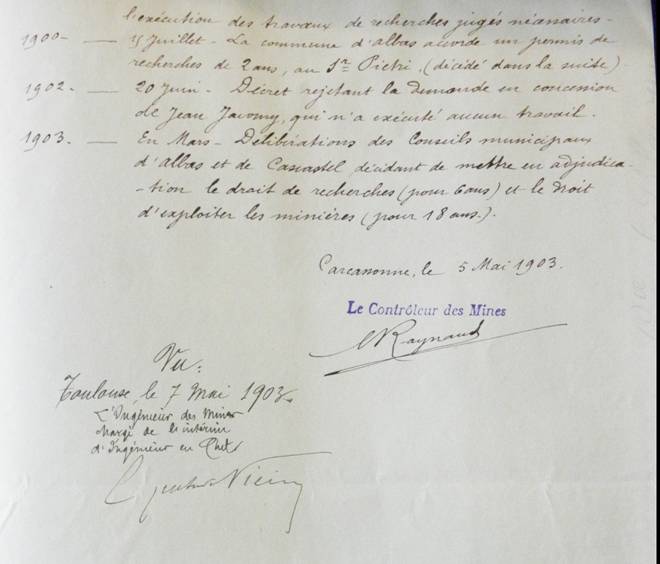 l'exécution des travaux de recherches jugés nécessaires -
1900 - — 31 Juillet - La commune d'albas accorde un permis de
recherches de 2 ans, au Sr Pietri. (décédé dans la suite)
1902. - — 20 Juin - Décret rejetant la demande en concession
de Jean Javomy, qui n'a exécuté aucun travail.
1903. — En Mars - Délibérations des Conseils municipaux
d'albas et de Cascastel décidant de mettre en adjudica-
-tion le droit de recherches (pour 6 ans) et le droit
d'exploiter les minières (pour 18 ans.).
Carcassonne, le 5 Mai 1903.
Le Contrôleur des Mines
Raynaud
Vu:
Toulouse, le 7 Mai 1903.
L'Ingénieur des Mines
chargé de l'intérim
d'Ingénieur en Chef